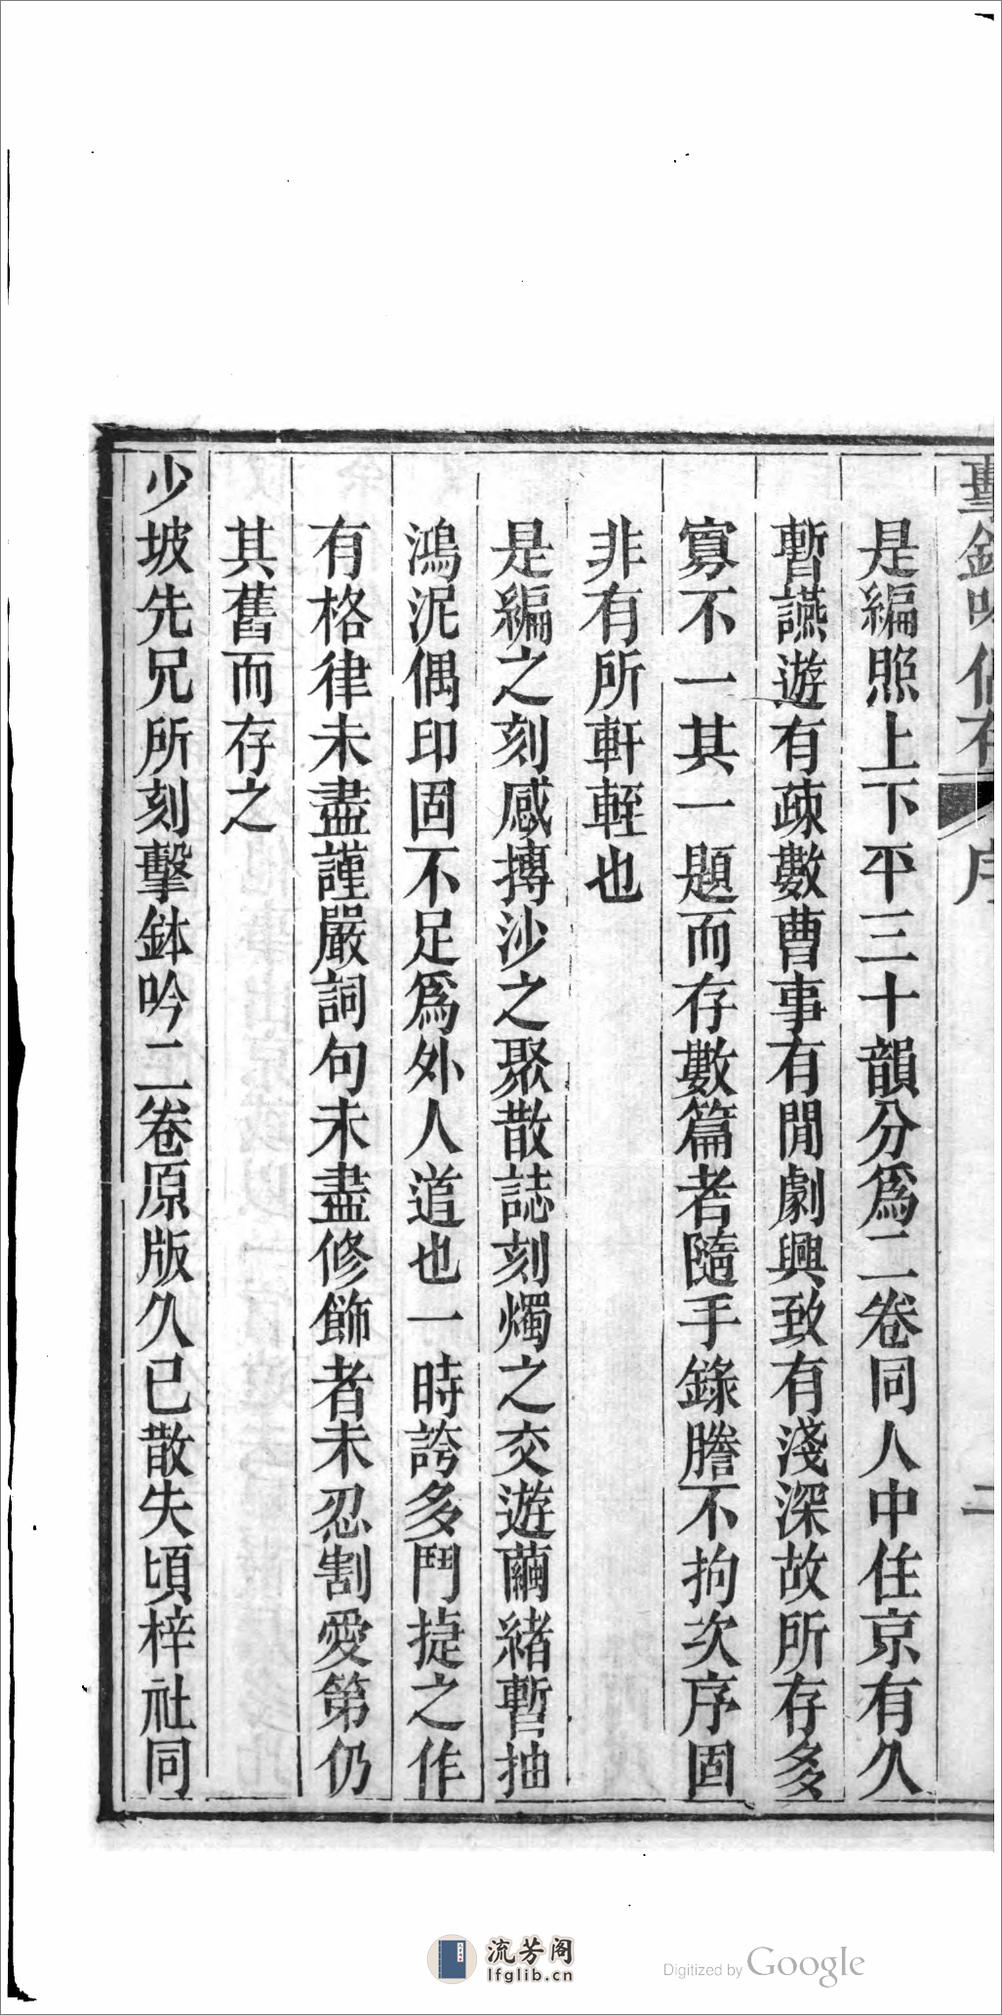 擊鉢吟偶存 序 二
是編照上下平三十韻分爲二卷同人中住京有久
暫讌遊有疎數曹事有閒劇興致有淺深故所存多
寡不一其一題而存數篇者隨手錄謄不拘次序固
非有所軒輊也
是編之刻感摶沙之聚散誌刻燭之交遊繭緖暫抽
鴻泥偶印固不足爲外人道也一時誇多鬥捷之作
有格律未盡謹嚴詞句未盡修飾者未忍割愛第仍
其舊而存之
少坡先兄所刻擊鉢吟二卷原版久已散失頃梓社同
流芳阁
lfglib.cn
Digitized by Google